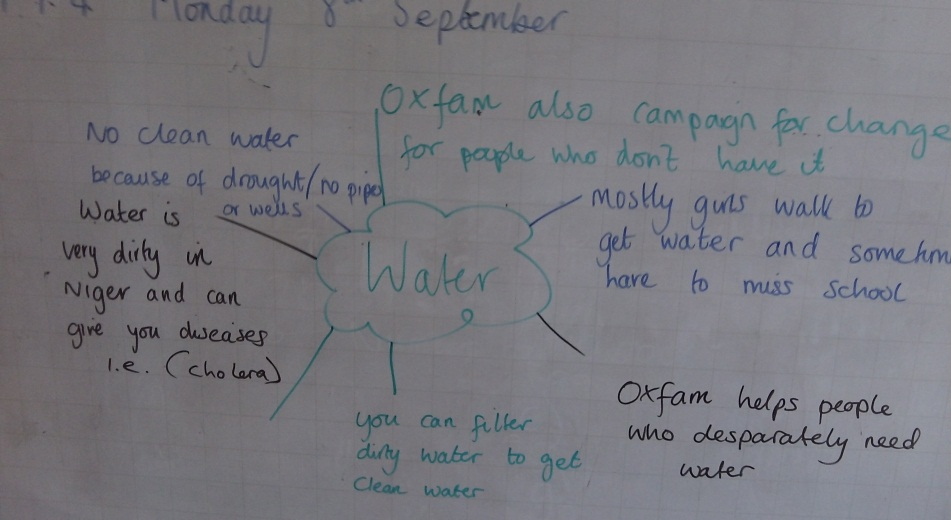 Monday 8th September
Oxfam also campaign for change
for people who don't have it
No clean water
because of drought/no pipes
or wells
Water is
very dirty in
Niger and can
give you diseases
i.e. (cholera)
Water
mostly girls walk to
get water and sometim
have to miss school
you can filter
dirty water to get
clean water
Oxfam helps people
who desparately need
water